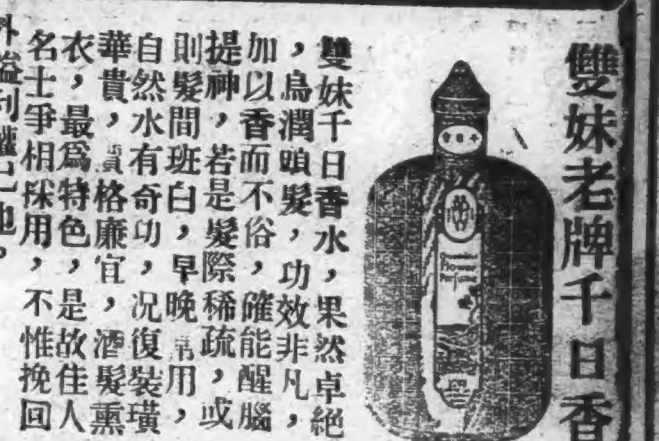 雙妹老牌千日香
雙妹千日香水，果然卓絕
，烏潤頭髮，功效非凡，
加以香而不俗，確能醒腦
提神，若是髮際稀疏，或
則髮間班白，早晚常用，
自然水有奇功，况復裝璜
華貴，價格廉宜，酒髮熏
衣，最爲特色，是故佳人
名士爭相採用，不惟挽回
外溢利權已也。
Flower
Perfume